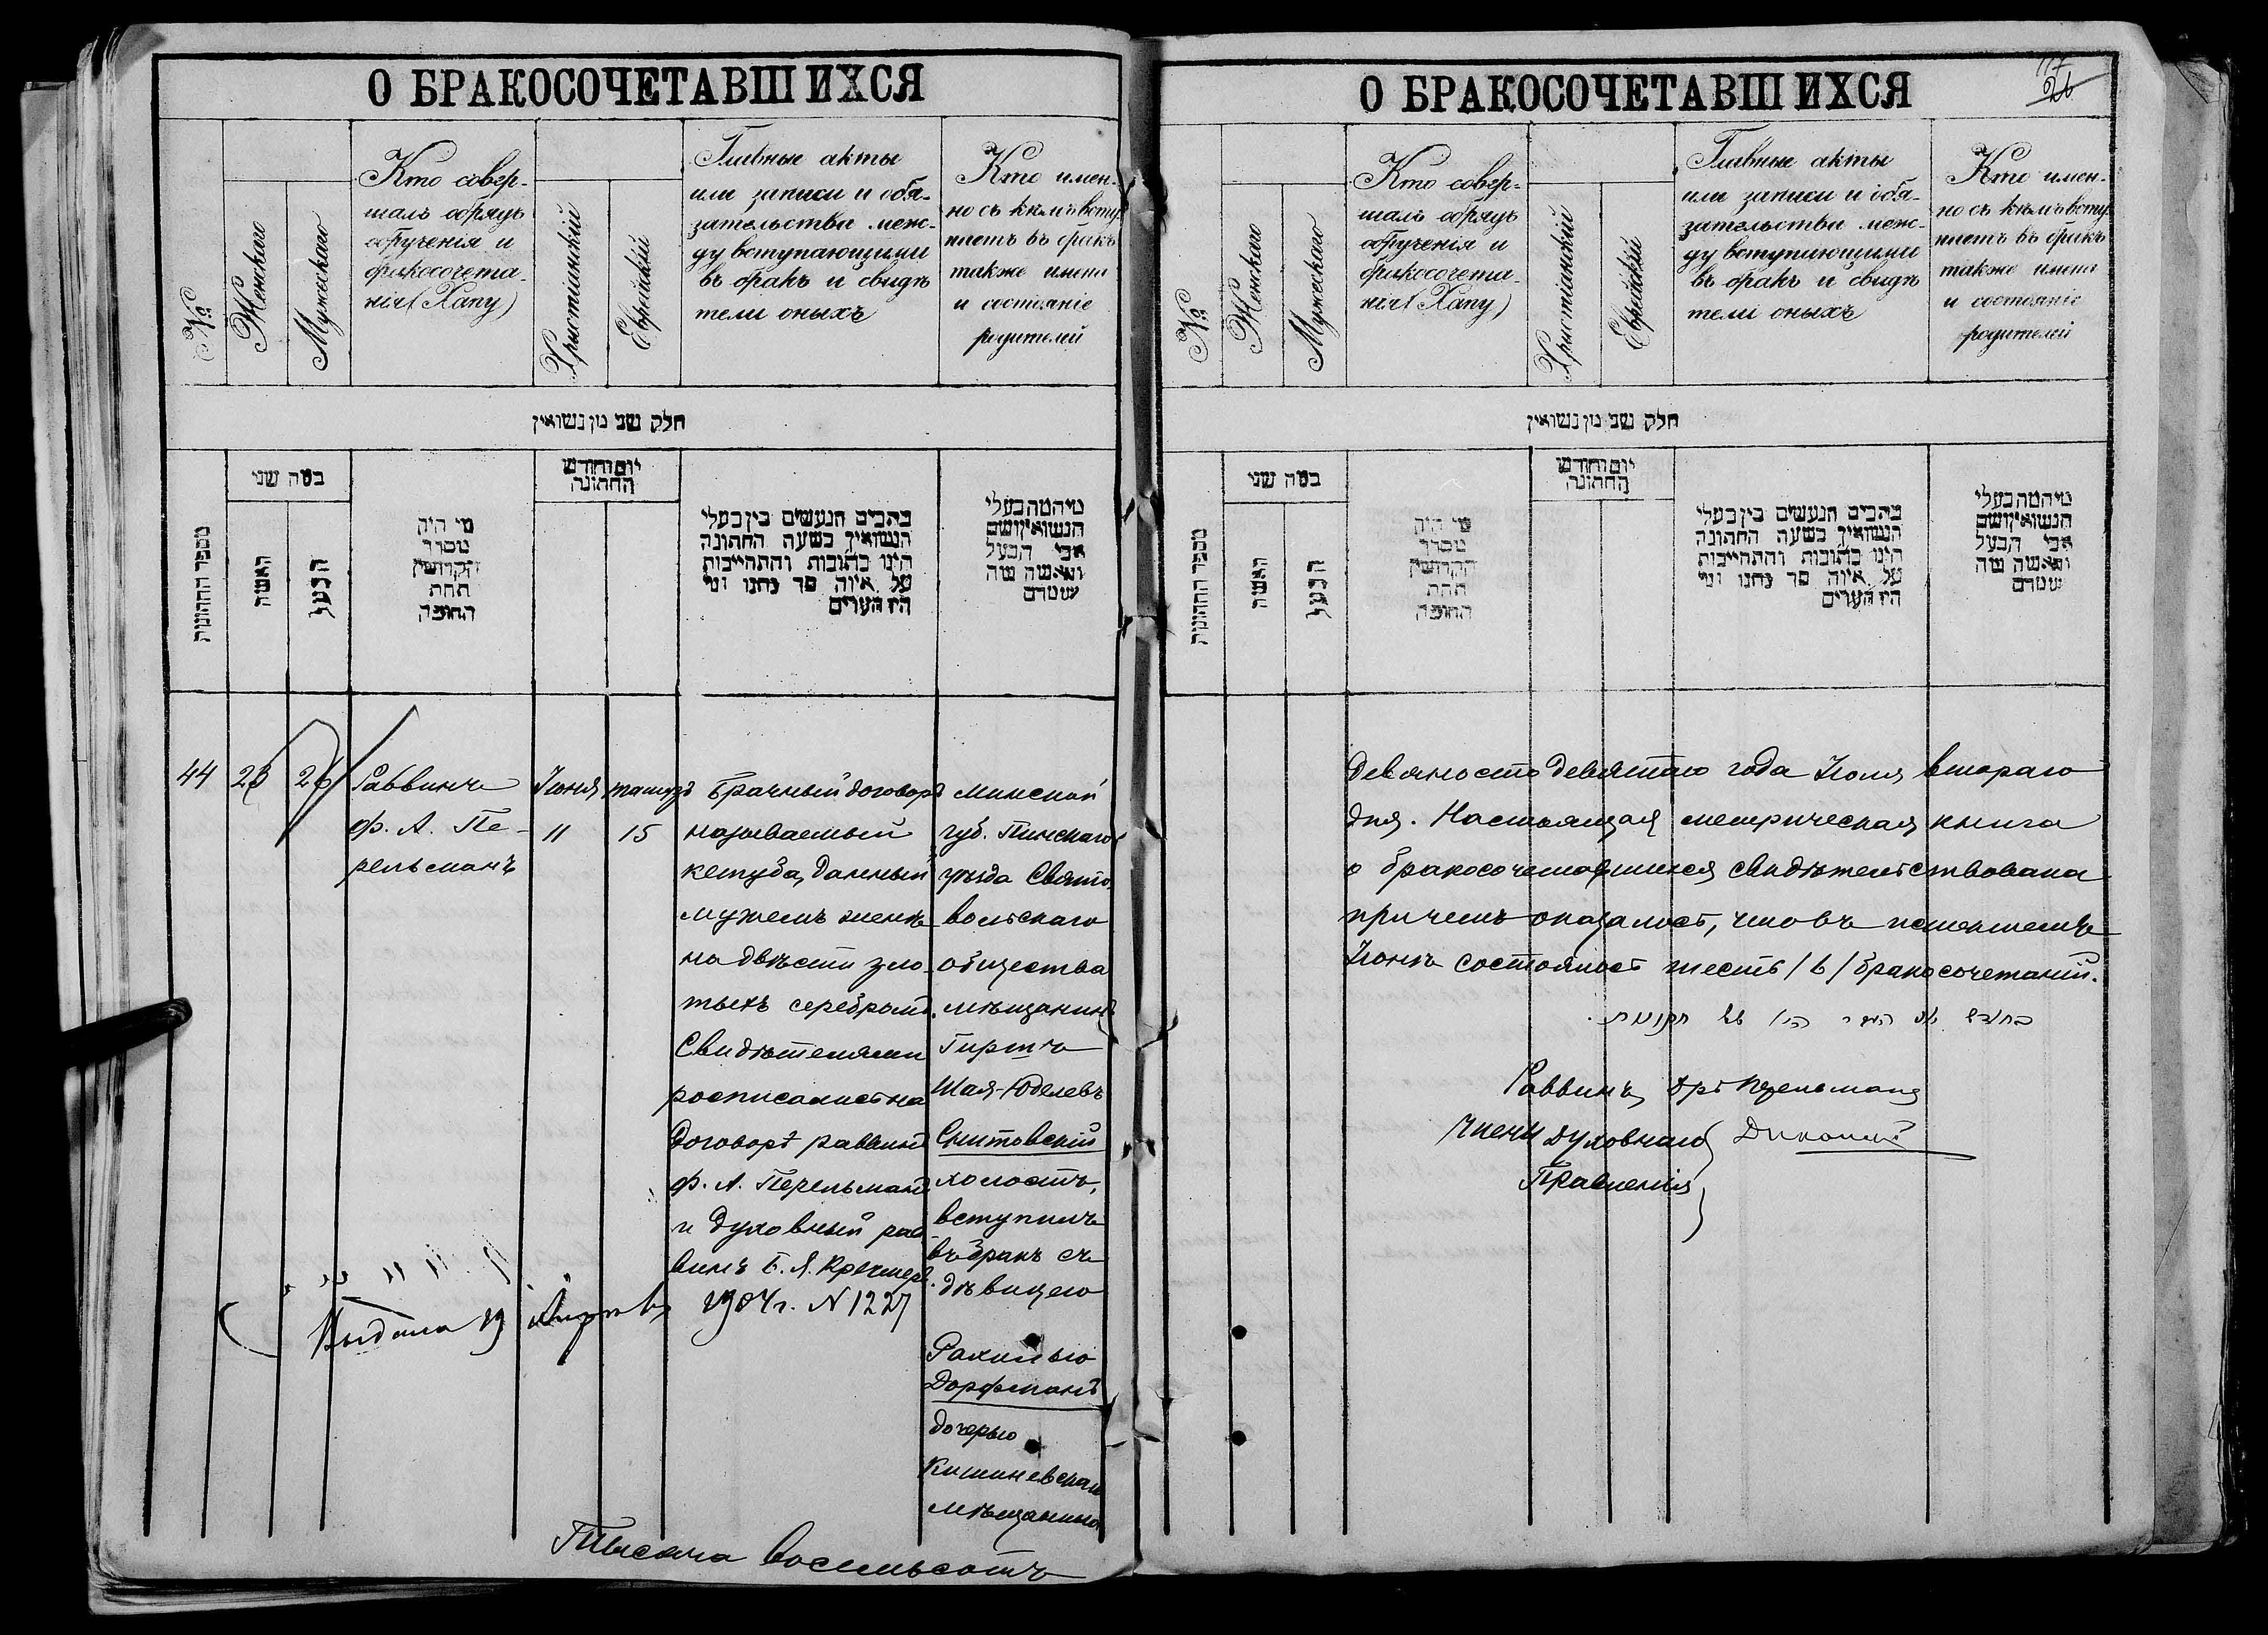 О БРАКОСОЧЕТАВШИХСЯ
№
Женскаго
Мужескаго
Кто совер-
шалъ обрядъ
обрученія и
бракосочета-
нія (Хапу)
Христіанскій
Еврейскій
Главные акты
или записи и обя-
зательства меж-
ду вступающими
въ бракъ и свидѣ
тели оныхъ
Кто имен-
но съ кѣмъ всту
паетъ въ бракъ
также имена
и состояніе
родителей
חלק שני מן נשואין
מספר החתונות
כמה שני
האשה
הבעל
מי היה
מסדר
הקדושין
תחת
החופה
יום וחודש
החתונה
כתבים הנעשים בין בעלי
הנשואין בשעה החתונה
היינו כתובות והתחייבות
על איזה סך נתנו ומי
היו העדים
מי המה בעלי
הנשואין ושם
אבי הבעל
והאשה מה
שמם
44
26
Раввинъ
ф. А. Пе-
рельманъ
Іюня
11
тамузъ
15
Брачный договоръ
называемый
кетуба, данный
мужемъ женѣ
на двѣсти зло-
тыхъ серебромъ.
Свидѣтелями
росписались на
договорѣ раввинъ
ф. А. Перельманъ
и духовный рав
винъ Б. Я.
Минской
губ. Пинскаго
уѣзда Свято
вольскаго
общества
мѣщанинъ
Гиршъ
Шая-Юделевъ
Снитовскій
холостъ,
вступилъ
въ бракъ съ
дѣвицею
Рахилью
Дорфманъ
дочерью
Кишиневскаго
мѣщанина
Выдана 19
1904 г. N 1227
Тысяча восемьсотъ
О БРАКОСОЧЕТАВШИХСЯ
117
26
№
Женскаго
Мужескаго
Кто совер-
шалъ обрядъ
обрученія и
бракосочета-
нія (Хапу)
Христіанскій
Еврейскій
Главные акты
или записи и обя-
зательства меж-
ду вступающими
въ бракъ и свидѣ
тели оныхъ
Кто имен-
но съ кѣмъ всту
паетъ въ бракъ
также имена
и состояніе
родителей
חלק שני מן נשואין
מספר החתונות
כמה שני
האשה
הבעל
מי היה
מסדר
הקדושין
תחת
החופה
יום וחודש
החתונה
כתבים הנעשים בין בעלי
הנשואין בשעה החתונה
היינו כתובות והתחייבות
על איזה סך נתנו ומי
היו העדים
מי המה בעלי
הנשואין ושם
אבי הבעל
והאשה מה
שמם
девяносто девятаго года Іюля втораго
дня. Настоящая метрическая книга
о бракосочетавшихся свидѣтельствована
причемъ оказалось, что въ истекшемъ
Іюнѣ состоялось шесть /6/ бракосочетаній.
Раввинъ Перельманъ
Члены духовнаго
Правленія